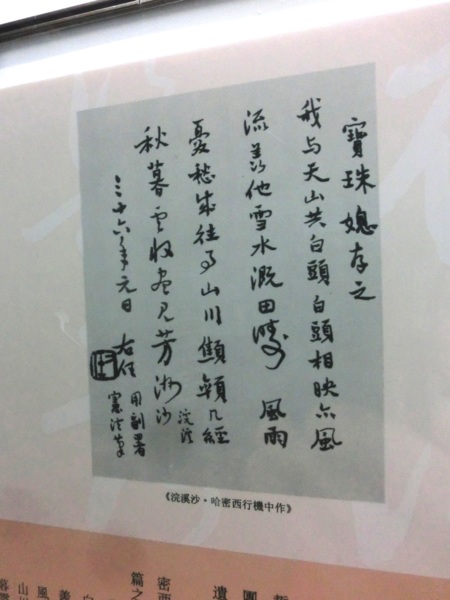 寶珠媳存之
我与天山共白頭白頭相映亦風
流羨他雪水溉田疇 風雨
憂愁成往事山川顦顇几經
秋暮云收盡見芳洲 浣溪沙
三十六年元日 右任
用副署
憲法筆
《浣溪沙·哈密西行機中作》
團
遺
密西
篇之
羨
風
山川